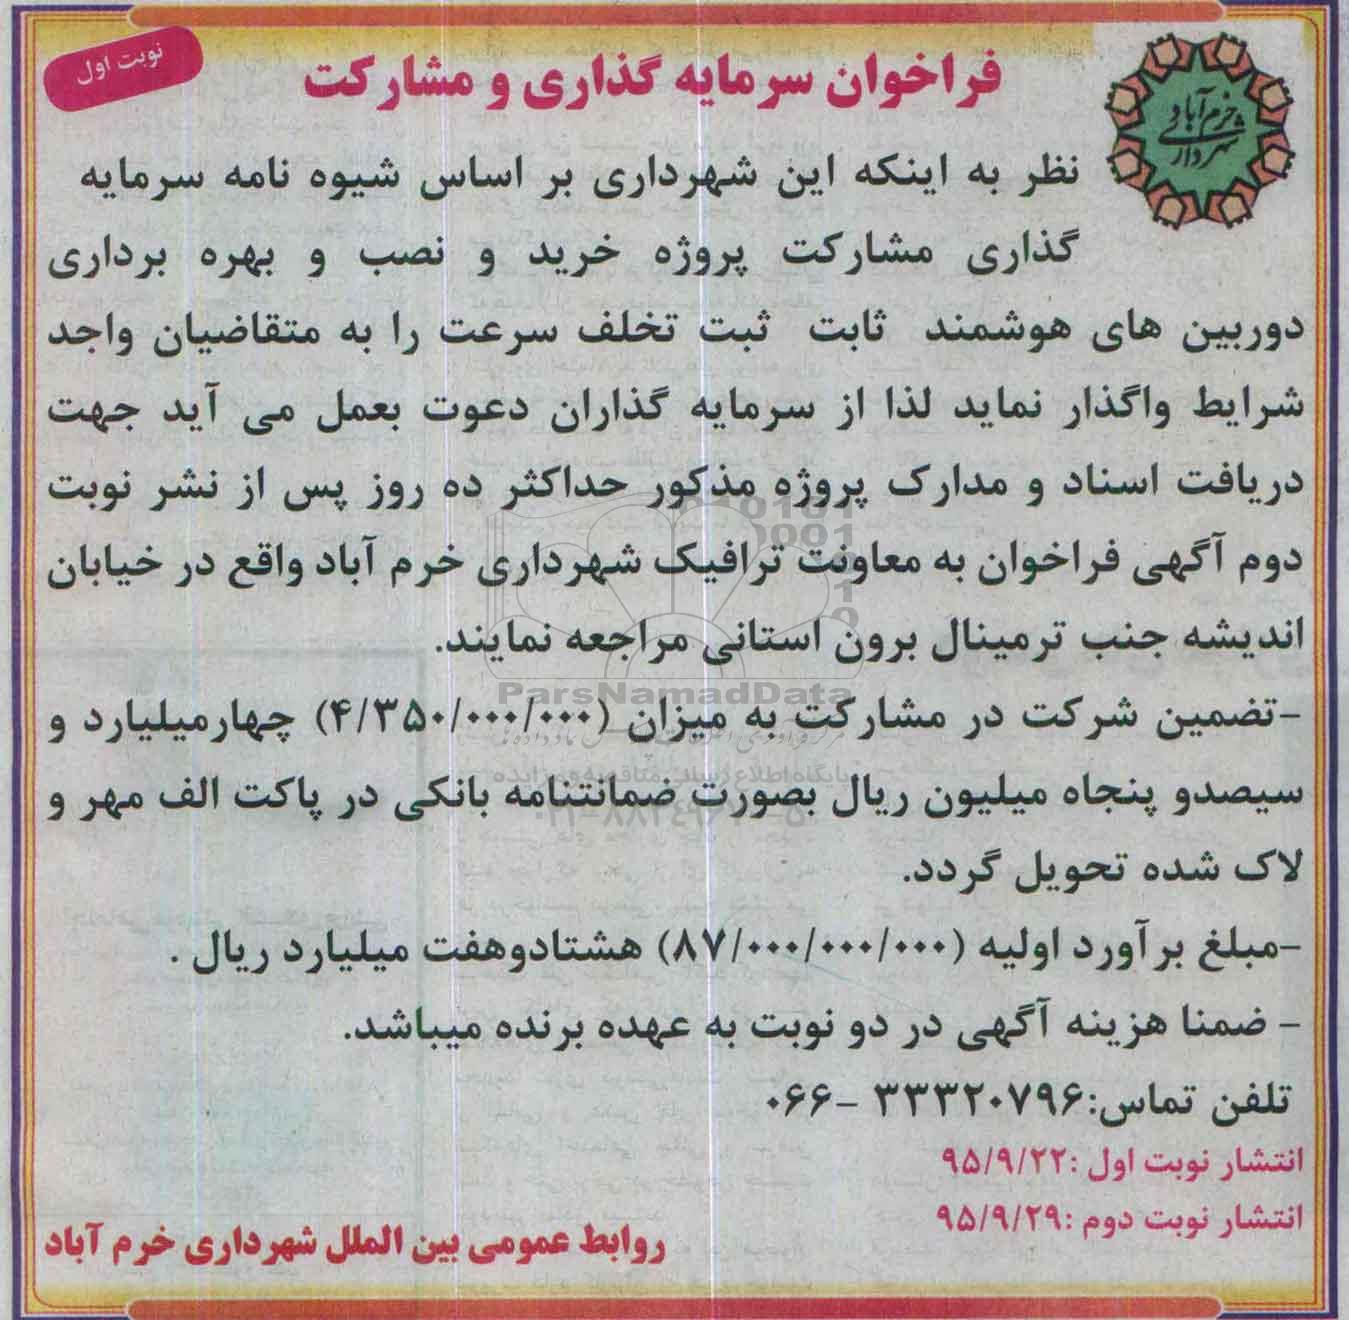 نوبت اول
فراخوان سرمایه گذاری و مشارکت
خرم آباد
شهرداری
نظر به اینکه این شهرداری بر اساس شیوه نامه سرمایه
گذاری مشارکت پروژه خرید و نصب و بهره برداری
دوربین های هوشمند ثابت ثبت تخلف سرعت را به متقاضیان واجد
شرایط واگذار نماید لذا از سرمایه گذاران دعوت بعمل می آید جهت
دریافت اسناد و مدارک پروژه مذکور حداکثر ده روز پس از نشر نوبت
دوم آگهی فراخوان به معاونت ترافیک شهرداری خرم آباد واقع در خیابان
اندیشه جنب ترمینال برون استانی مراجعه نمایند.
ParsNamadData
-تضمین شرکت در مشارکت به میزان (۴/۳۵۰/۰۰۰/۰۰۰) چهارمیلیارد و
سیصدو پنجاه میلیون ریال بصورت ضمانتنامه بانکی در پاکت الف مهر و
لاک شده تحویل گردد.
-مبلغ برآورد اولیه (۸۷/۰۰۰/۰۰۰/۰۰۰) هشتادوهفت میلیارد ریال .
- ضمنا هزینه آگهی در دو نوبت به عهده برنده میباشد.
تلفن تماس:۳۳۳۲۰۷۹۶ -۰۶۶
انتشار نوبت اول :۹۵/۹/۲۲
انتشار نوبت دوم :۹۵/۹/۲۹
روابط عمومی بین الملل شهرداری خرم آباد